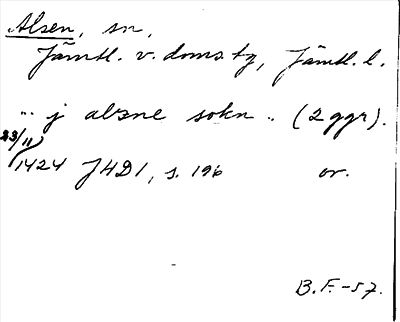 Alsen, sn,
Jämtl. v. doms. tg, Jämtl. l.
... j alsne sokn .. (2 ggr).
23/11
1424 JHD1, s. 196 or.
B.F.-57.